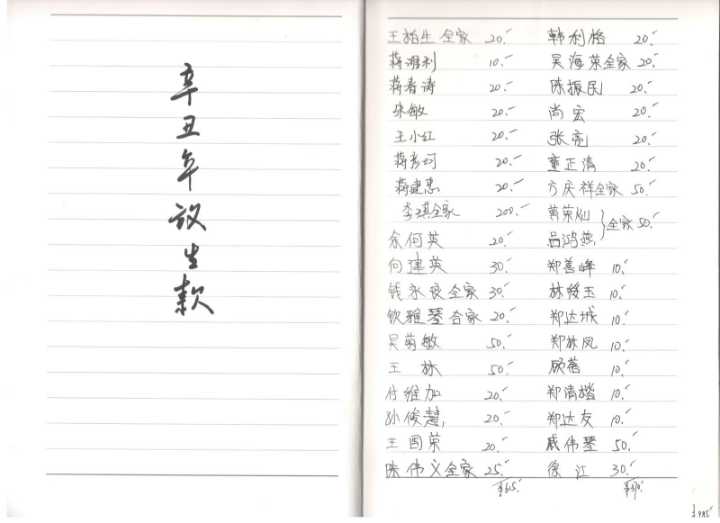 辛丑年放生款
王 生全家 20.-
蒋 利 10.-
蒋春涛 20.-
朱敏 20.-
王小红 20.-
蒋 20.-
蒋建忠 20.-
李琪全家 200.-
余何英 20.-
向建英 30.-
钱永良全家 30.-
钦雅琴合家 20.-
吴菊敏 50.-
王林 50.-
付维加 20.-
孙俊慧 20.-
王国荣 20.-
陈伟义全家 25.-
韩利 20.-
吴海荣全家 20.-
陈振民 20.-
尚宏 20.-
张亮 20.-
童正清 20.-
方庆祥全家 50.-
黄荣灿
吕鸿燕 全家 50.-
郑善峰 10.-
林 玉 10.-
郑达城 10.-
郑林凤 10.-
顾蓉 10.-
郑清 10.-
郑达友 10.-
戚伟琴 50.-
徐江 30.-